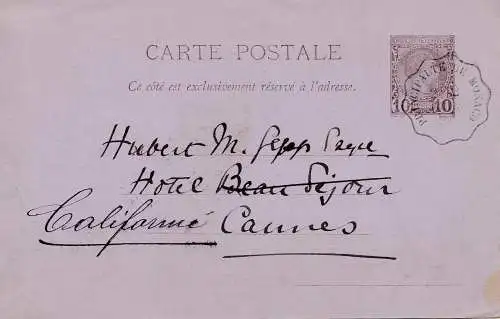 CARTE POSTALE
Ce côté est exclusivement réservé à l'adresse.
10 10
PRINCIPAUTÉ DE MONACO
Hubert M. Gepp Esqre
Hotel Beau Séjour
Californie Cannes